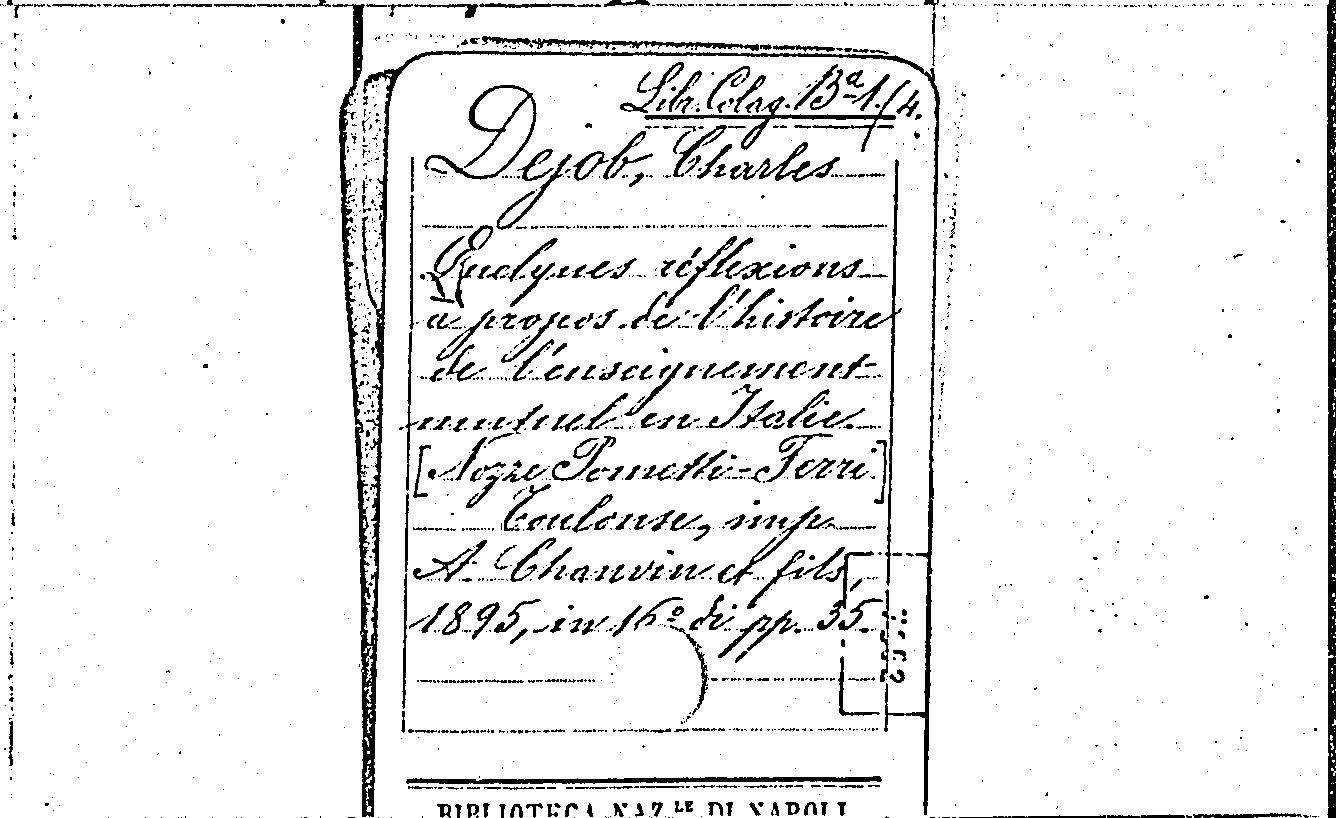 Libr. Colag. Bª 1./4.
Dejob, Charles
Quelques réflexions
à propos de l'histoire
de l'enseignement
mutuel en Italie.
[Nozze Pometti-Ferri]
Toulouse, imp.
A. Chauvin et fils,
1895, in 16º di pp. 35.
BIBLIOTECA NAZ.LE DI NAPOLI